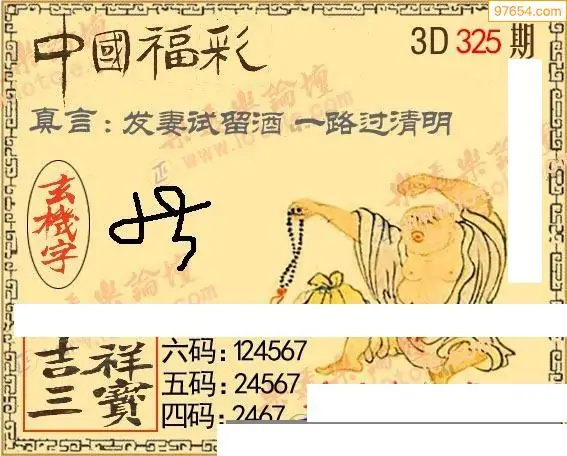 97654.com
中國福彩
3D 325 期
真言：发妻试留酒 一路过清明
玄機字
吉祥
三寶
六码：124567
五码：24567
四码：2467